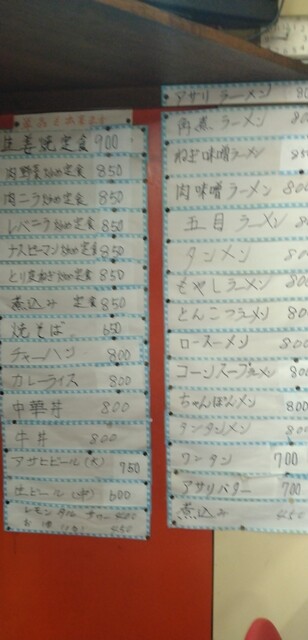 生姜焼定食 900
肉野菜炒め定食 850
肉ニラ炒め定食 850
レバニラ炒め定食 850
ナスピーマン炒め定食 850
とり皮ねぎ炒め定食 850
煮込み 定食 850
焼そば 650
チャーハン 800
カレーライス 800
中華丼 800
牛丼 800
アサヒビール(大) 750
生ビール(中) 600
レモン サワー 400
450
アサリ ラーメン 80
角煮 ラーメン 80
ねぎ味噌ラーメン 85
肉味噌ラーメン 80
五目ラーメン 80
タンメン 80
もやしラーメン 80
とんこつラーメン 80
ロースーメン 80
コーンスープラーメン 800
ちゃんぽんメン 800
タンタンメン 800
ワンタン 700
アサリバター 700
煮込み 450